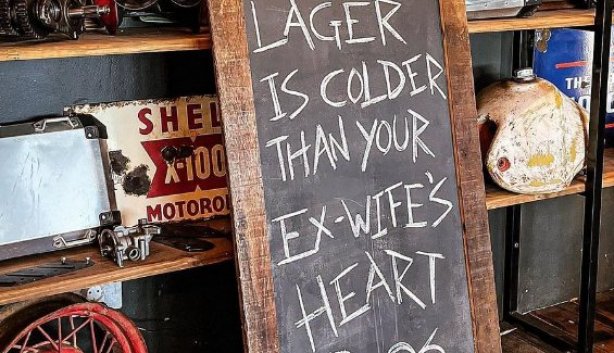 LAGER
IS COLDER
THAN YOUR
EX-WIFE'S
HEART
SHEL
X-100
MOTOR
TH